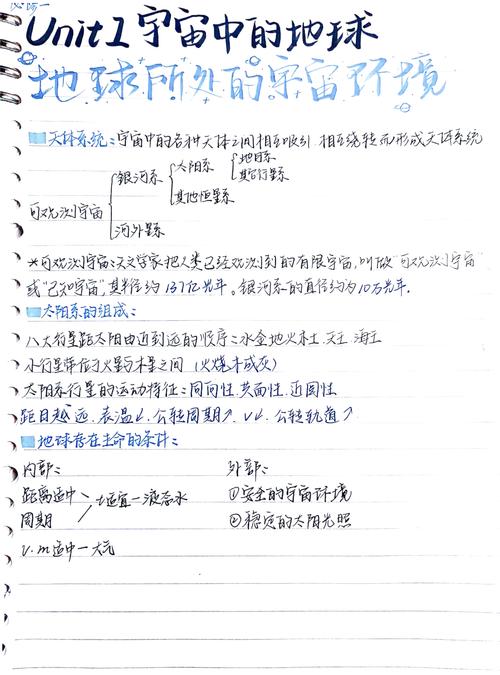 必修一
Unit1 宇宙中的地球
地球所处的宇宙环境
天体系统：宇宙中的各种天体之间相互吸引、相互绕转而形成天体系统
可观测宇宙
银河系
太阳系
地月系
其它行星系
其他恒星系
河外星系
*可观测宇宙：天文学家把人类已经观测到的有限宇宙，叫做"可观测宇宙"
或"已知宇宙"，其半径约137亿光年。银河系的直径约为10万光年。
太阳系的组成：
八大行星距太阳由近到远的顺序：水金地火木土、天王、海王
小行星带位于火星与木星之间（火烧木成灰）
太阳系行星的运动特征：同向性、共面性、近圆性
距日越远、表温↓、公转周期↗、v↓、公转轨道↗
地球存在生命的条件：
内部： 外部：
距离适中 t适宜—液态水 ①安全的宇宙环境
周期 ②稳定的太阳光照
v.m适中—大气